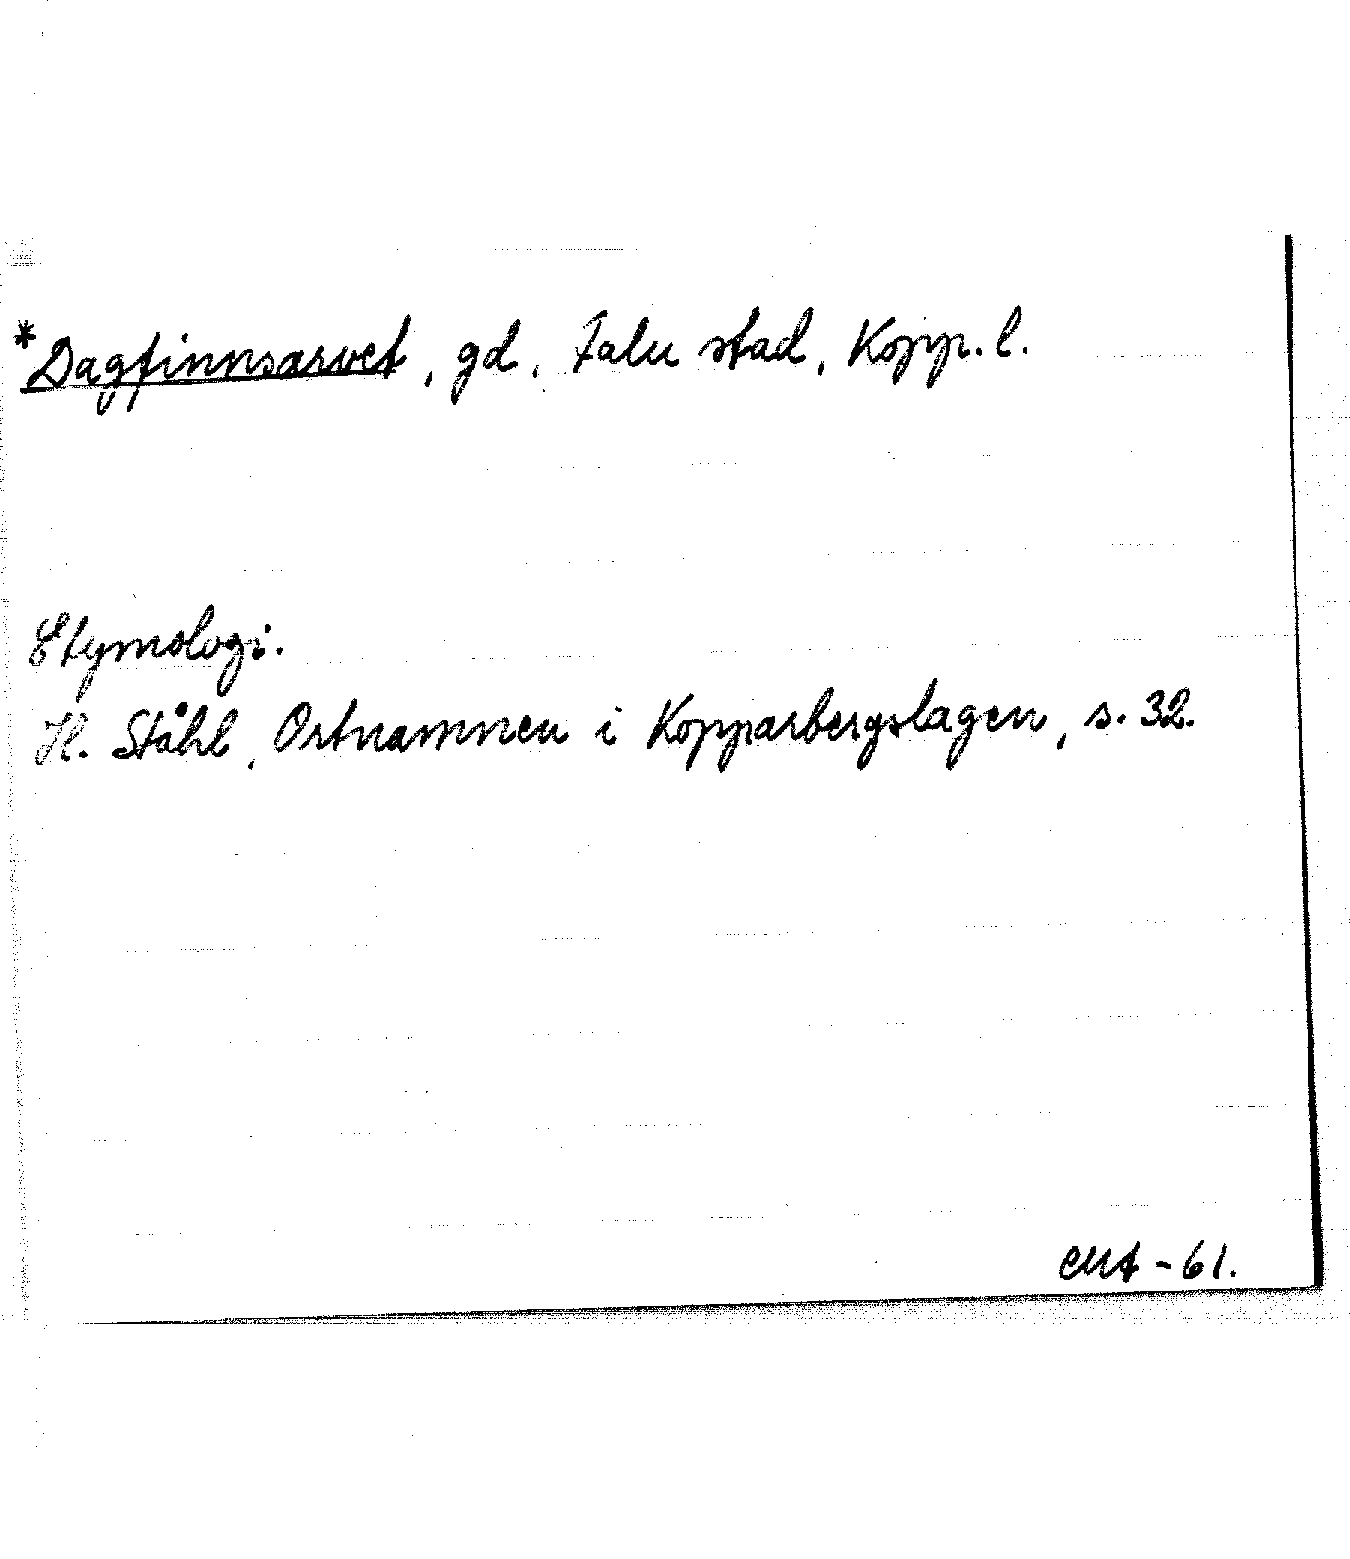 *Dagfinnsarvet, gd, Falu stad, Kopp. l.
Etymologi.
H. Ståhl, Ortnamnen i Kopparbergslagen, s. 32.
-61.